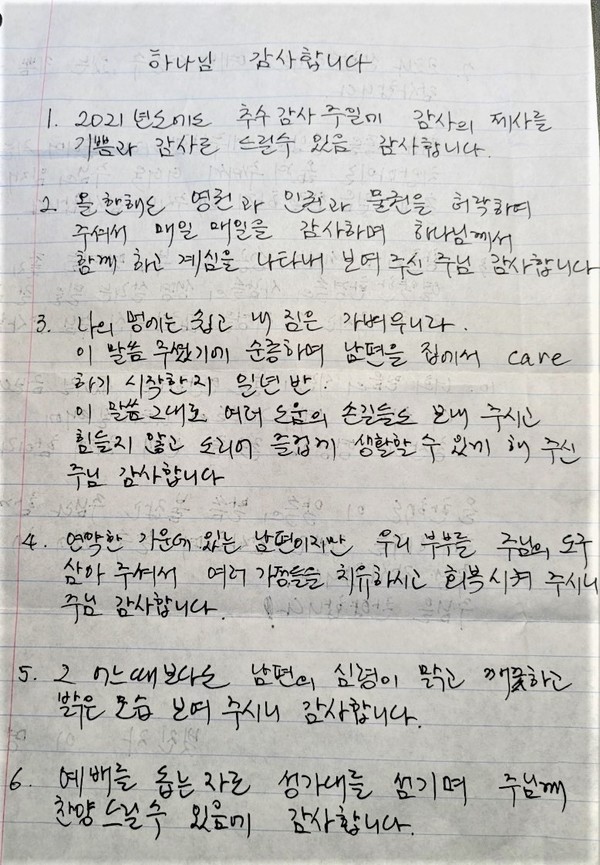 하나님 감사합니다
1. 2021년도에도 추수감사주일에 감사의 제사를
기쁨과 감사로 드릴수 있음 감사합니다.
2. 올 한해도 영권과 인권과 물권을 허락하여
주셔서 매일 매일을 감사하며 하나님께서
함께 하고 계심을 나타내 보여 주신 주님 감사합니다
3. 나의 멍에는 쉽고 내 짐은 가벼우니라.
이 말씀 주셨기에 순종하며 남편을 집에서 care
하기 시작한지 일년 반.
이 말씀 그대로 여러 도움의 손길들도 보내 주시고
힘들지 않고 도리어 즐겁게 생활할 수 있게 해 주신
주님 감사합니다
4. 연약한 가운데 있는 남편이지만 우리 부부를 주님의 도구
삼아 주셔서 여러 가정들을 치유하시고 회복시켜 주시니
주님 감사합니다.
5. 그 어느때보다도 남편의 심령이 맑고 깨끗하고
밝은 모습 보여 주시니 감사합니다.
6. 예배를 돕는 자로 성가대를 섬기며 주님께
찬양드릴수 있음에 감사합니다.